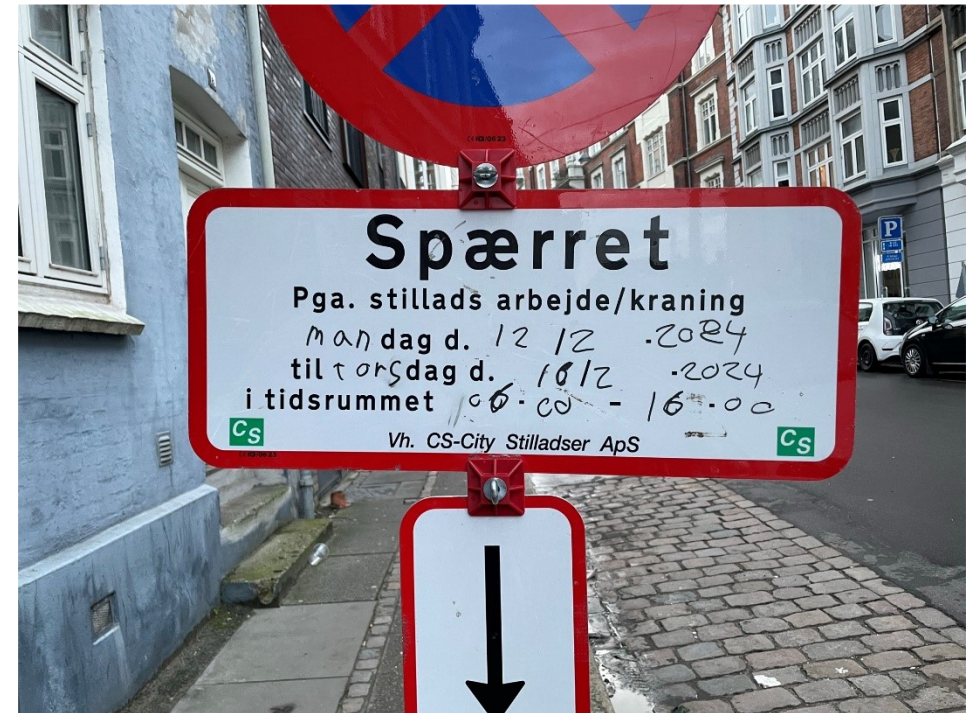 Spærret
Pga. stillads arbejde/kraning
mandag d. 12/2 .2024
til torsdag d. 16/2 .2024
i tidsrummet 06.00 - 16.00
CS
Vh. CS-City Stilladser ApS
CS
P